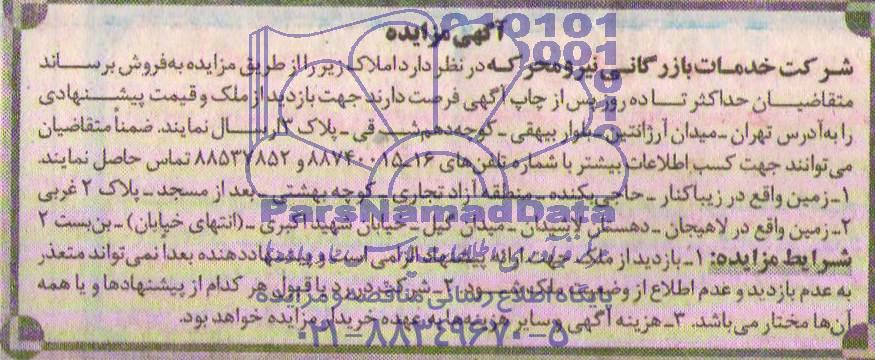 آگهی مزایده
شرکت خدمات بازرگانی نیرو محرکه در نظر دارد املاک زیر را از طریق مزایده به فروش برساند
متقاضیان حداکثر تا ده روز پس از چاپ آگهی فرصت دارند جهت بازدید از ملک و قیمت پیشنهادی
را به آدرس تهران ـ میدان آرژانتین ـ بلوار بیهقی ـ کوچه دهم شرقی ـ پلاک ارسال نمایند. ضمناً متقاضیان
می‌توانند جهت کسب اطلاعات بیشتر با شماره تلفن‌های ۱۶ـ۸۸۷۴۰۰۱۵ و ۸۸۵۳۷۸۵۲ تماس حاصل نمایند.
۱ـ زمین واقع در زیباکنار ـ حاجی بکنده ـ منطقه آزاد تجاری ـ کوچه بهشتی ـ بعد از مسجد ـ پلاک ۲ غربی
ParsNamadData
۲ـ زمین واقع در لاهیجان ـ دهستان لاشیدان ـ میدان گیل ـ خیابان شهید اکبری ـ (انتهای خیابان) ـ بن‌بست ۲
شرایط مزایده: ۱ـ بازدید از ملک جهت ارائه پیشنهاد الزامی است و پیشنهاددهنده بعدا نمی‌تواند متعذر
به عدم بازدید و عدم اطلاع از وضعیت ملک شود. ۲ـ شرکت در رد یا قبول هر کدام از پیشنهادها و یا همه
پایگاه اطلاع رسانی مناقصه و مزایده
آن‌ها مختار می‌باشد. ۳ـ هزینه آگهی و سایر هزینه‌ها به عهده خریدار مزایده خواهد بود.
۰۲۱-۸۸۳۴۹۶۷۰-۵